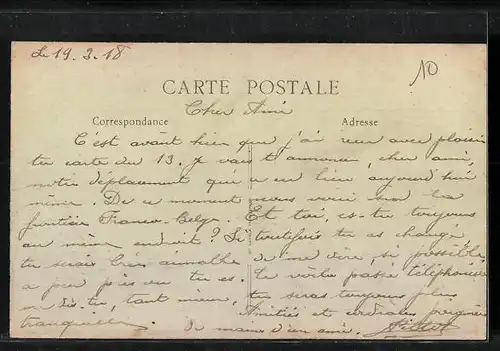 Le 19.3.18
10
CARTE POSTALE
Cher Ami
Correspondance
Adresse
C'est avant hier que j'ai recu avec plaisir
ta carte du 13. Je vais t'annoncer, cher ami,
notre déplacement qui a eu lieu aujourd'hui
même. De ce moment nous voici sur la
frontière Franco-Belge. Et toi, es-tu toujours
au même endroit? Si toutefois tu as changé
tu serais bien aimable de me dire, si possible,
à peu près où tu es. Te voilà passé téléphoniste
me dis-tu, tant mieux, tu seras toujours plus
tranquille. Amitiés et cordiales poignées
de mains d'un ami.